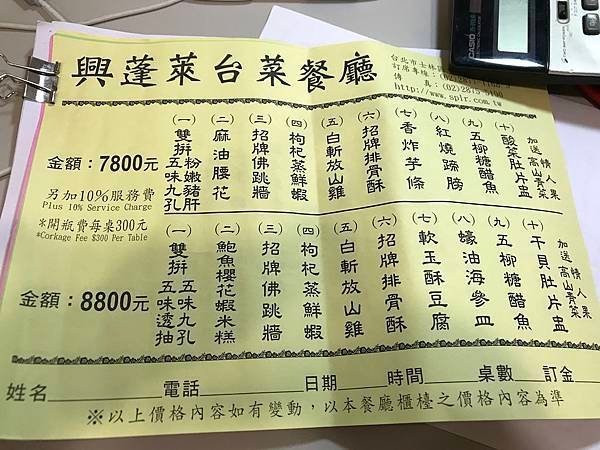 興蓬萊台菜餐廳
台北市士林
訂席專線：(02)
傳 真：(02)2875-5100
http://www.splr.com.tw
金額：7800元
(一)雙拼 粉嫩豬肝 五味九孔
(二)麻油腰花
(三)招牌佛跳牆
(四)枸杞蒸鮮蝦
(五)白斬放山雞
(六)招牌排骨酥
(七)香炸芋條
(八)紅燒蹄膀
(九)五柳糖醋魚
(十)酸菜肚片盅
加送 情人果 高山青菜
另加10%服務費
Plus 10% Service Charge
※開瓶費每桌300元
*Corkage Fee $300 Per Table
金額：8800元
(一)雙拼 五味九孔 五味透抽
(二)鮑魚櫻花蝦米糕
(三)招牌佛跳牆
(四)枸杞蒸鮮蝦
(五)白斬放山雞
(六)招牌排骨酥
(七)軟玉酥豆腐
(八)蠔油海參皿
(九)五柳糖醋魚
(十)干貝肚片盅
加送 情人果 高山青菜
姓名 電話 日期 時間 桌數 訂金
※以上價格內容如有變動，以本餐廳櫃檯之價格內容為準
CASIO